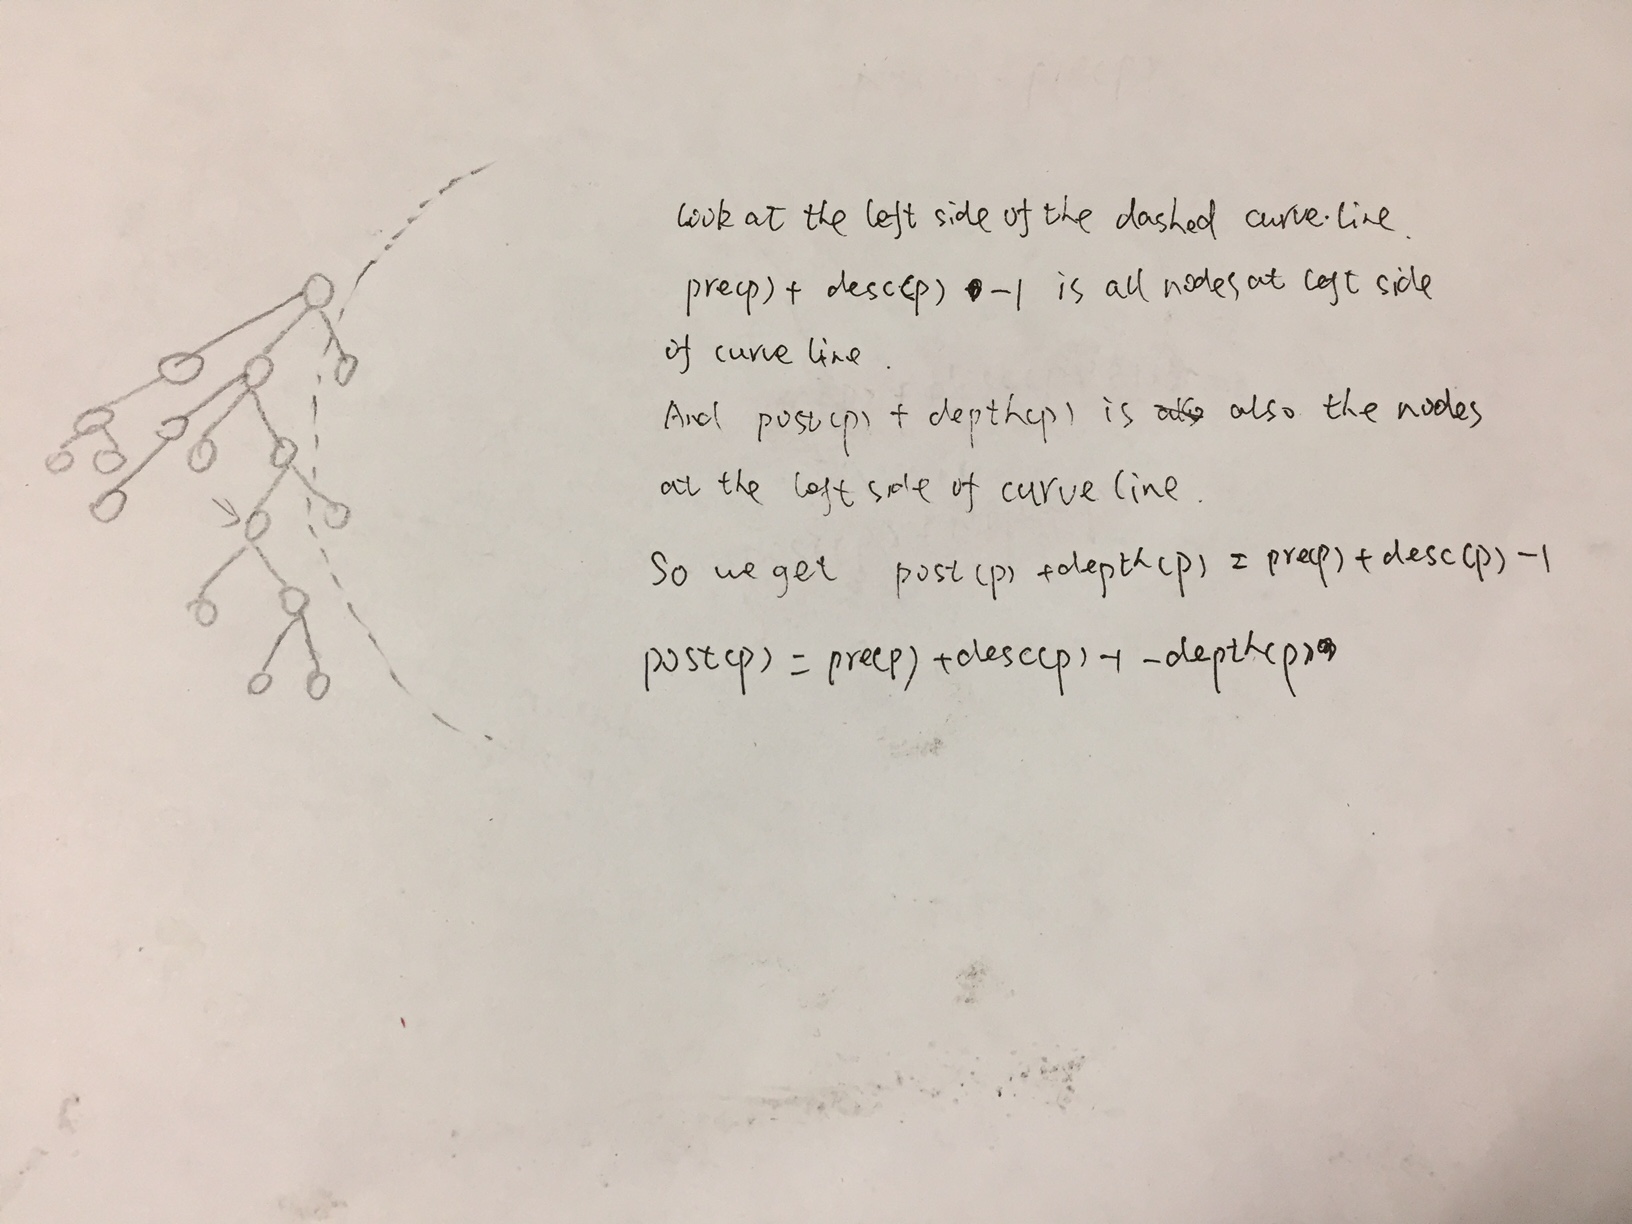 Look at the left side of the dashed curve line.
pre(p) + desc(p) -1 is all nodes at left side
of curve line.
And post(p) + depth(p) is also the nodes
at the left side of curve line.
So we get post(p) + depth(p) = pre(p) + desc(p) -1
post(p) = pre(p) + desc(p) -1 - depth(p)